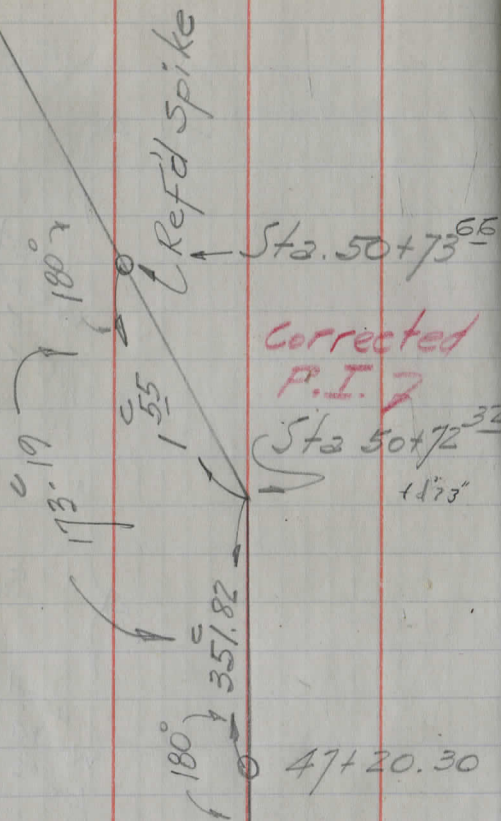 Ref'd Spike
180°
Sta. 50+73 66
Corrected
P.I.
1 55
c
Sta 50+72 32
173-19
c
351.82
c
180°
47+20.30